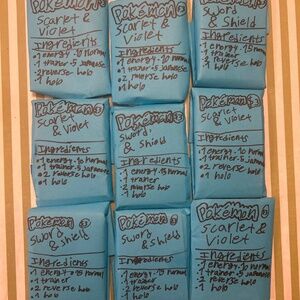 Pokémon
Scarlet &
Violet
Ingredients
•1 energy •10 normal
•1 trainer •5 japanese
•2 reverse holo
•1 holo
Pokémon
Scarlet &
Violet
Ingredients
•1 energy •10 normal
•1 trainer •5 japanese
•2 reverse holo
•1 holo
Sword
& Shield
Ingredients
•1 energy •15 normal
•1 trainer
•2 reverse holo
•1 holo
Pokémon
Scarlet
& Violet
Ingredients
•1 energy •10 normal
•1 trainer •5 japanese
•2 reverse holo
•1 holo
Pokémon
Sword
& Shield
Ingredients
•1 energy •15 normal
•1 trainer
•2 reverse holo
•1 holo
Pokémon
Scarlet &
Violet
Ingredients
•1 energy •10 normal
•1 trainer •5 japanese
•2 reverse holo
•1 holo
Pokémon
Sword
& Shield
Ingredients
•1 energy •15 normal
•1 trainer
•2 reverse holo
•1 holo
Pokémon
Sword
& Shield
Ingredients
•1 energy •15 normal
•1 trainer
•2 reverse holo
•1 holo
Pokémon
Scarlet &
Violet
Ingredients
•1 energy •10 normal
•1 trainer •5 japanese
•2 reverse holo
•1 holo